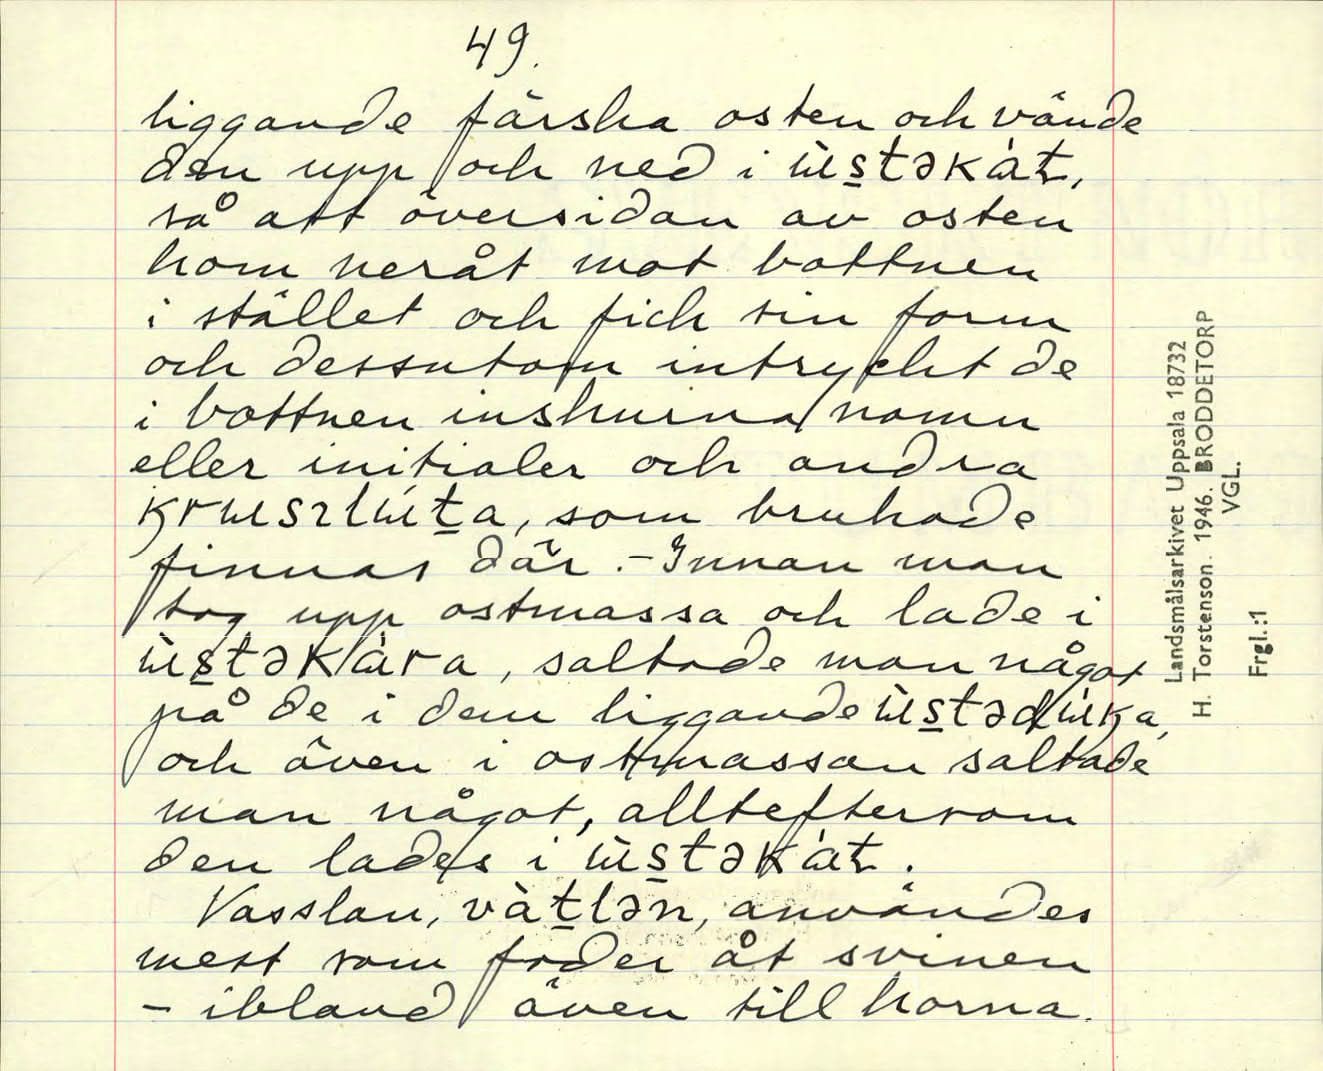 49.
liggande färska osten och vände
den upp och ned i ùs̱təkàt,
så att översidan av osten
kom neråt mot bottnen
i stället och fick sin form
och dessutom intryckt de
i bottnen inskurna namn
eller initialer och andra
som brukade
finnas där. – Innan man
tog upp ostmassa och lade i
saltade man något
på de i dem liggande
och även i ostmassan saltade
man något, allteftersom
den lades i ùs̱təkàt.
Vasslan, vàṯlən, användes
mest som foder åt svinen
– ibland även till korna.
Landsmålsarkivet Uppsala 18732
H. Torstenson. 1946. BRODDETORP
VGL.
Frgl.:1